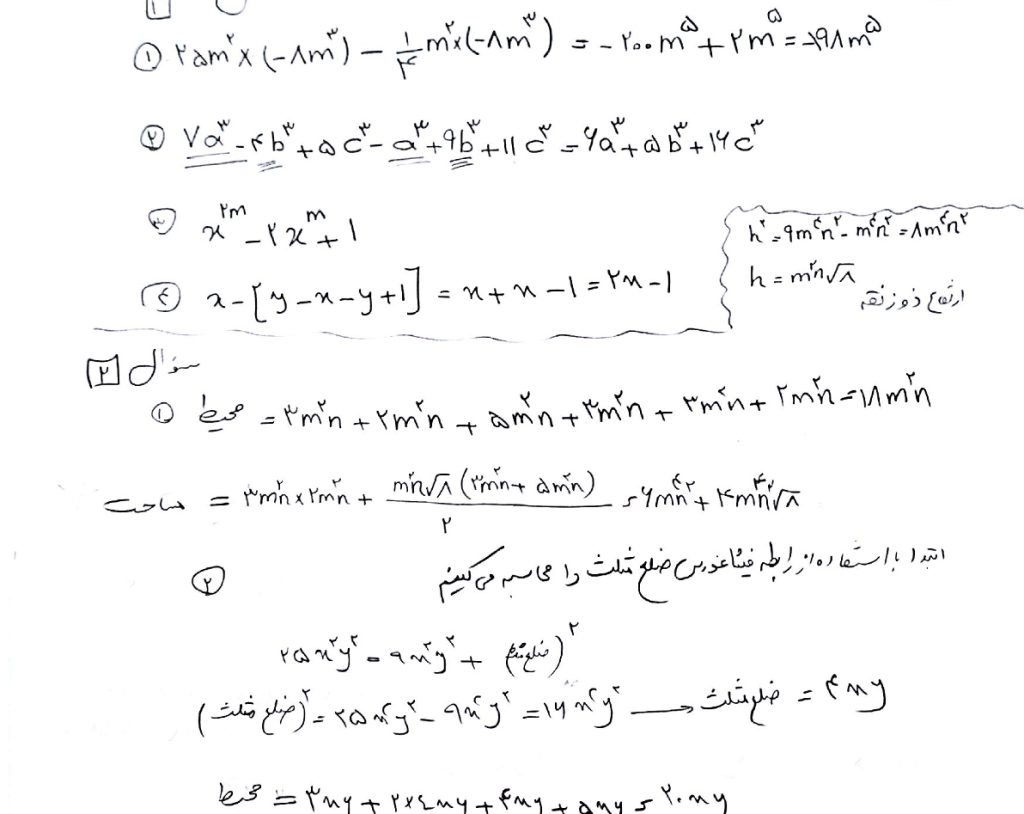 ۱
① ۲۵m² × (-۸m³) - ۱/۴ m² × (-۸m³) = -۲۰۰m⁵ + ۲m⁵ = -۱۹۸m⁵
② ۷a³ - ۴b³ + ۵c³ - a³ + ۹b³ + ۱۱c³ = ۶a³ + ۵b³ + ۱۶c³
③ x²ᵐ - ۲xᵐ + ۱
④ x - [y - x - y + ۱] = x + x - ۱ = ۲x - ۱
h² = ۹m⁴n² - m⁴n² = ۸m⁴n²
h = m²n√۸
ارتفاع ذوزنقه
سؤال ۲
① محیط = ۳m²n + ۲m²n + ۵m²n + ۳m²n + ۳m²n + ۲m²n = ۱۸m²n
مساحت = ۳m²n × ۲m²n + m²n√۸ (۳m²n + ۵m²n) / ۲ = ۶m⁴n² + ۴m⁴n²√۸
② ابتدا با استفاده از رابطه فیثاغورس ضلع مثلث را محاسبه می‌کنیم
۲۵x²y² = ۹x²y² + (ضلع مثلث)²
(ضلع مثلث)² = ۲۵x²y² - ۹x²y² = ۱۶x²y² → ضلع مثلث = ۴xy
محیط = ۳xy + ۲×۴xy + ۴xy + ۵xy = ۲۰xy